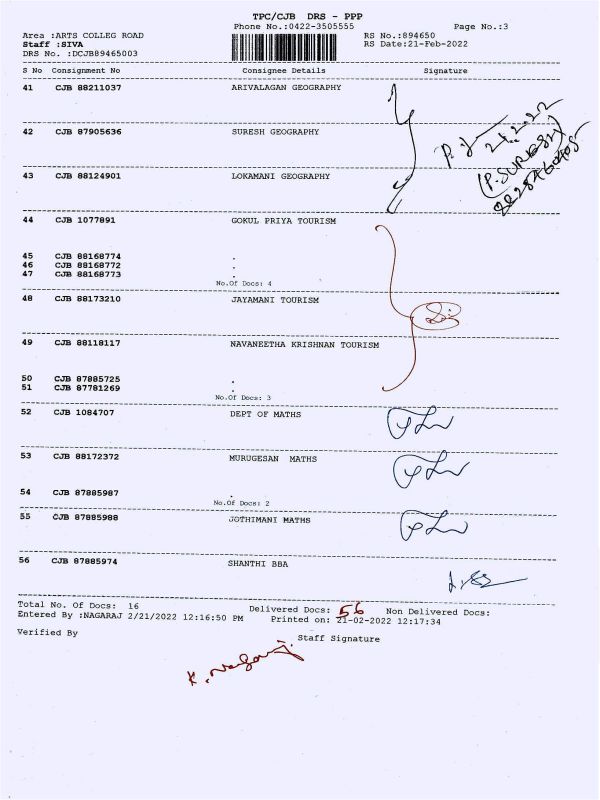 TPC/CJB DRS - PPP
Phone No.:0422-3505555 Page No.:3
Area :ARTS COLLEG ROAD RS No.:894650
Staff :SIVA RS Date:21-Feb-2022
DRS No. :DCJB89465003
S No Consignment No Consignee Details Signature
41 CJB 88211037 ARIVALAGAN GEOGRAPHY
21.2.22
42 CJB 87905636 SURESH GEOGRAPHY
(P.SURESH)
43 CJB 88124901 LOKAMANI GEOGRAPHY
44 CJB 1077891 GOKUL PRIYA TOURISM
45 CJB 88168774 .
46 CJB 88168772 .
47 CJB 88168773 .
No.Of Docs: 4
48 CJB 88173210 JAYAMANI TOURISM
49 CJB 88118117 NAVANEETHA KRISHNAN TOURISM
50 CJB 87885725 .
51 CJB 87781269 .
No.Of Docs: 3
52 CJB 1084707 DEPT OF MATHS
53 CJB 88172372 MURUGESAN MATHS
54 CJB 87885987 .
No.Of Docs: 2
55 CJB 87885988 JOTHIMANI MATHS
56 CJB 87885974 SHANTHI BBA
Total No. Of Docs: 16 Delivered Docs: 56 Non Delivered Docs:
Entered By :NAGARAJ 2/21/2022 12:16:50 PM Printed on: 21-02-2022 12:17:34
Verified By Staff Signature
K. Nagaraj.